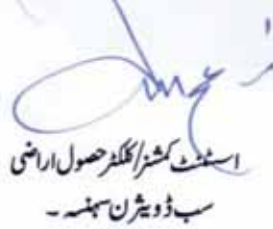 اسسٹنٹ کمشنر/کلکٹر حصول اراضی
سب ڈویژن سہنسہ ۔